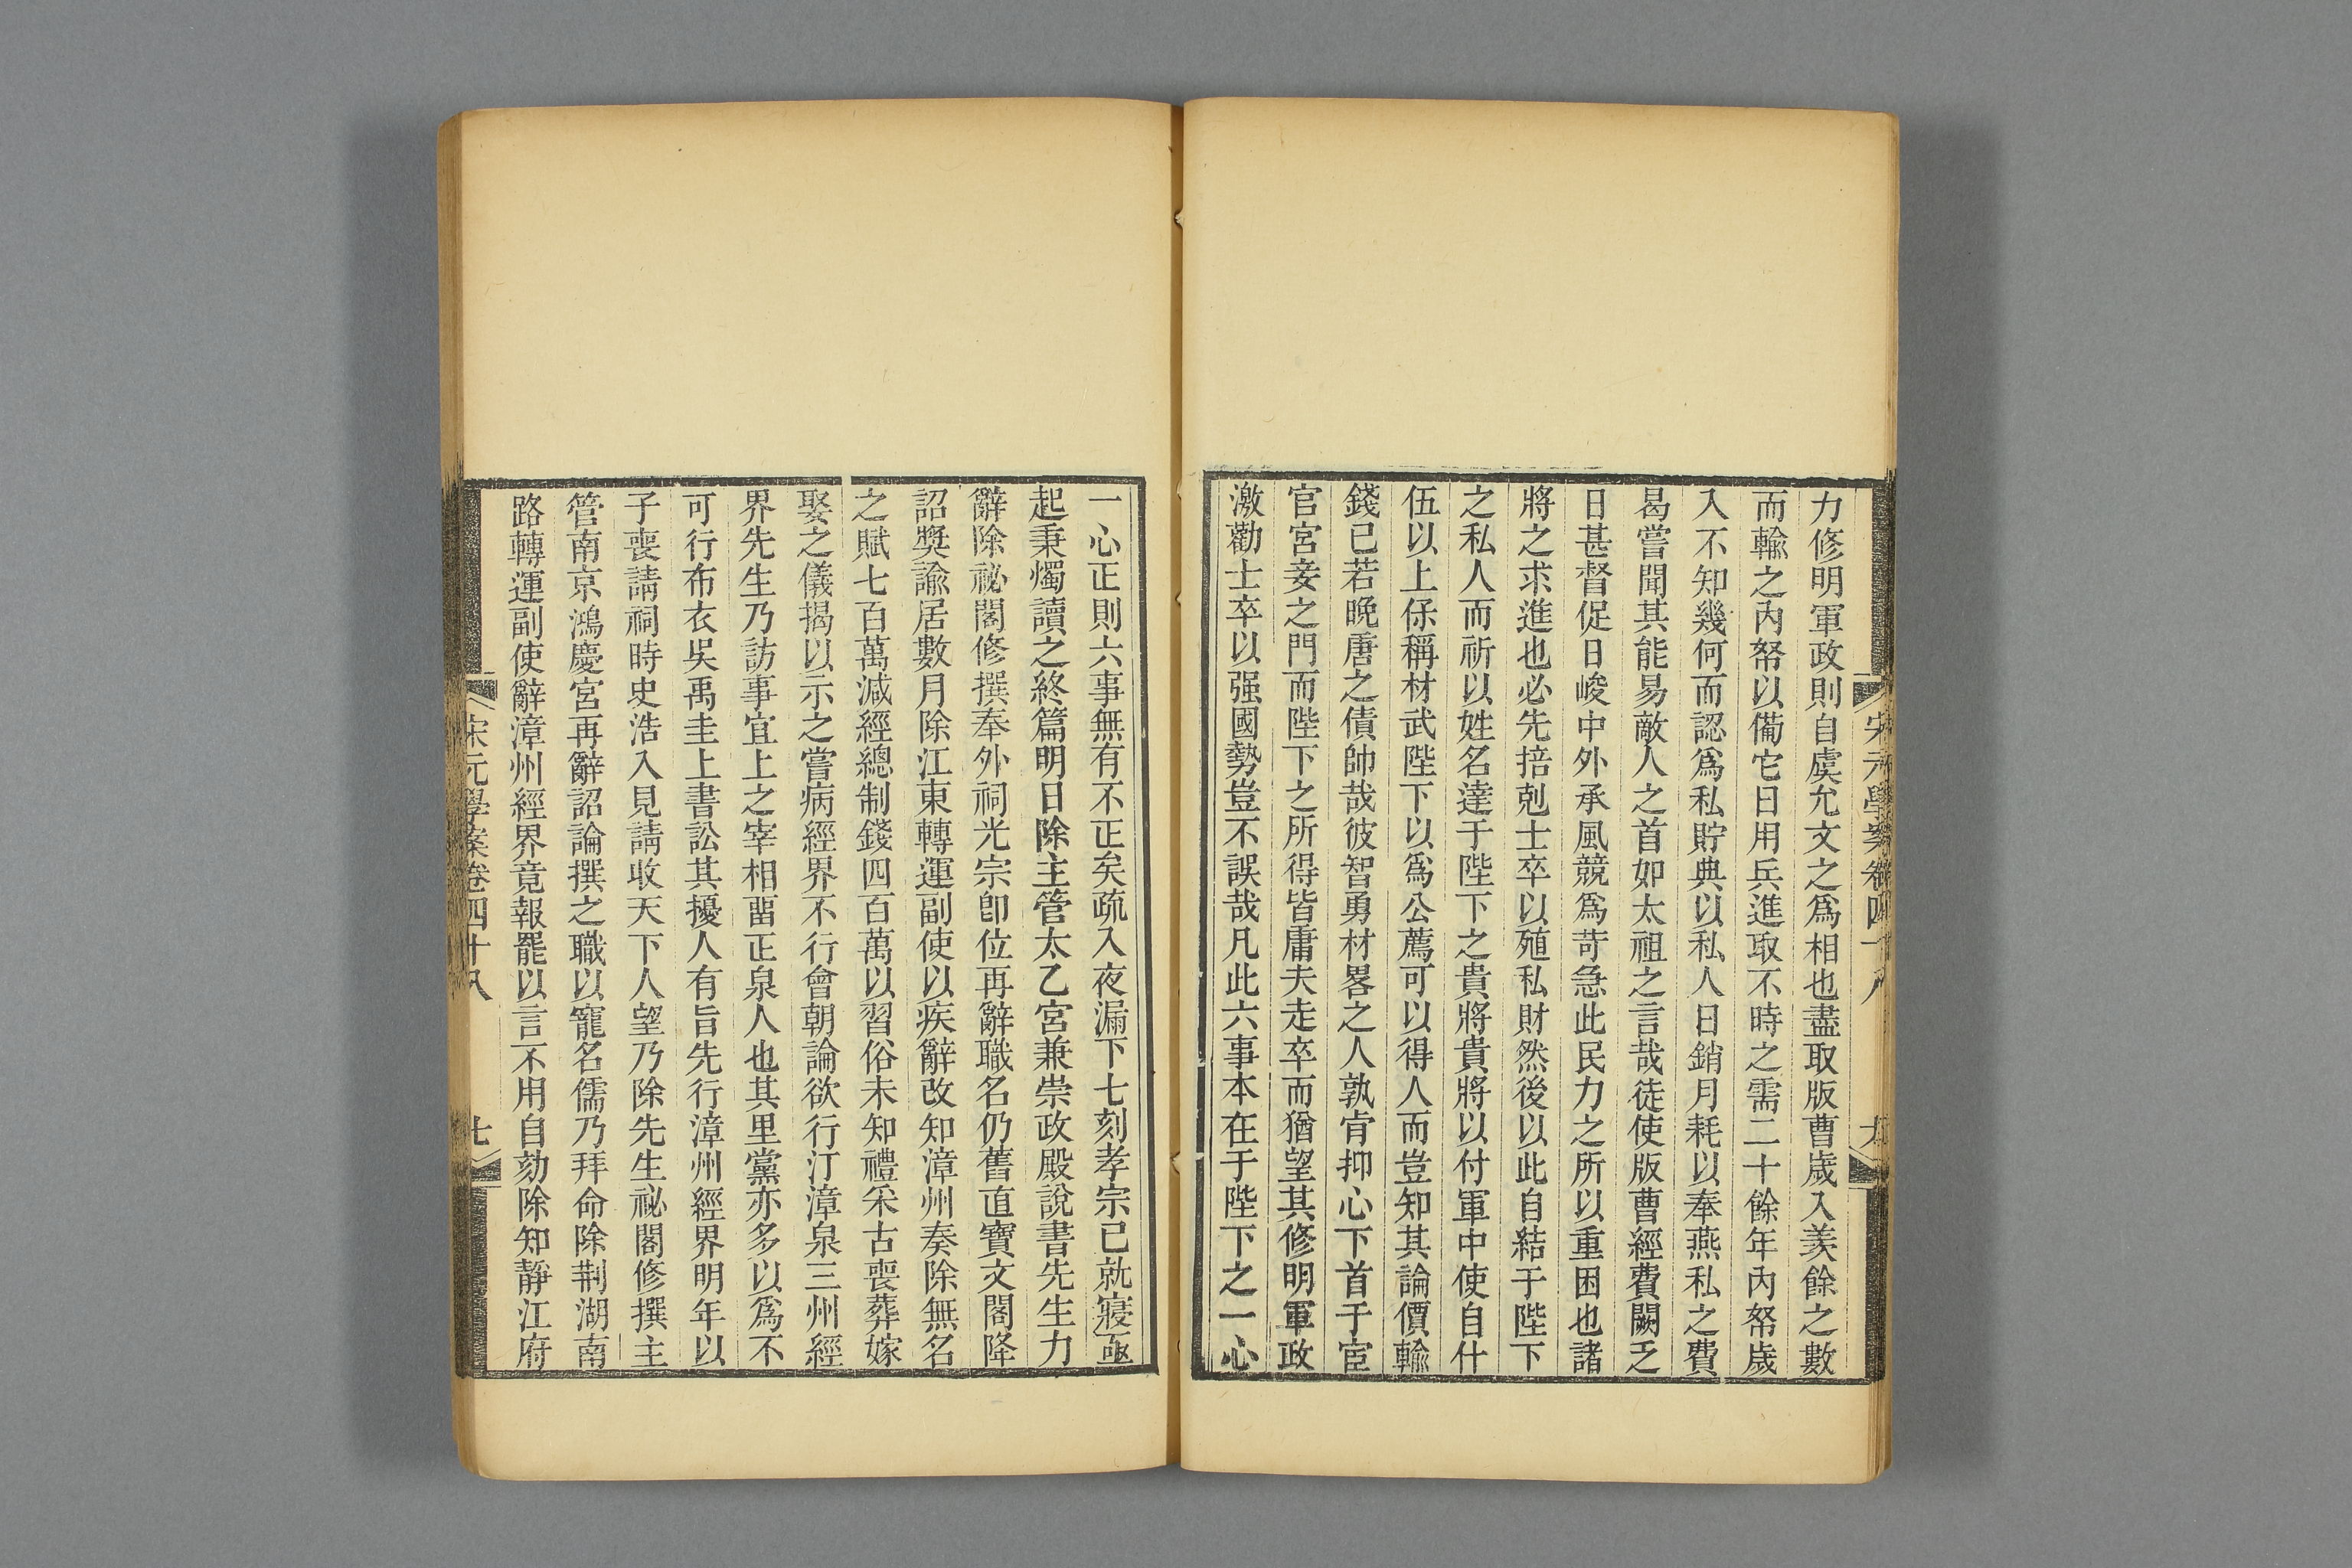 宋元學案卷四十八
力修明軍政則自虞允文之爲相也盡取版曹歲入羨餘之數
而輸之內帑以備它日用兵進取不時之需二十餘年內帑歲
入不知幾何而認爲私貯典以私人日銷月耗以奉燕私之費
曷嘗聞其能易敵人之首如太祖之言哉徒使版曹經費闕乏
日甚督促日峻中外承風競爲苛急此民力之所以重困也諸
將之求進也必先掊剋士卒以殖私財然後以此自結于陛下
之私人而祈以姓名達于陛下之貴將貴將以付軍中使自什
伍以上保稱材武陛下以爲公薦可以得人而豈知其論價輸
錢已若晚唐之債帥哉彼智勇材畧之人孰肯抑心下首于宦
官宮妾之門而陛下之所得皆庸夫走卒而猶望其修明軍政
激勸士卒以强國勢豈不誤哉凡此六事本在于陛下之一心
一心正則六事無有不正矣疏入夜漏下七刻孝宗已就寢亟
起秉燭讀之終篇明日除主管太乙宮兼崇政殿說書先生力
辭除祕閣修撰奉外祠光宗卽位再辭職名仍舊直寶文閣降
詔奬諭居數月除江東轉運副使以疾辭改知漳州奏除無名
之賦七百萬減經總制錢四百萬以習俗未知禮采古喪葬嫁
娶之儀揭以示之嘗病經界不行會朝論欲行汀漳泉三州經
界先生乃訪事宜上之宰相畱正泉人也其里黨亦多以爲不
可行布衣吳禹圭上書訟其擾人有旨先行漳州經界明年以
子喪請祠時史浩入見請收天下人望乃除先生祕閣修撰主
管南京鴻慶宮再辭詔論撰之職以寵名儒乃拜命除荆湖南
路轉運副使辭漳州經界竟報罷以言不用自劾除知靜江府
宋元學案卷四十八
七